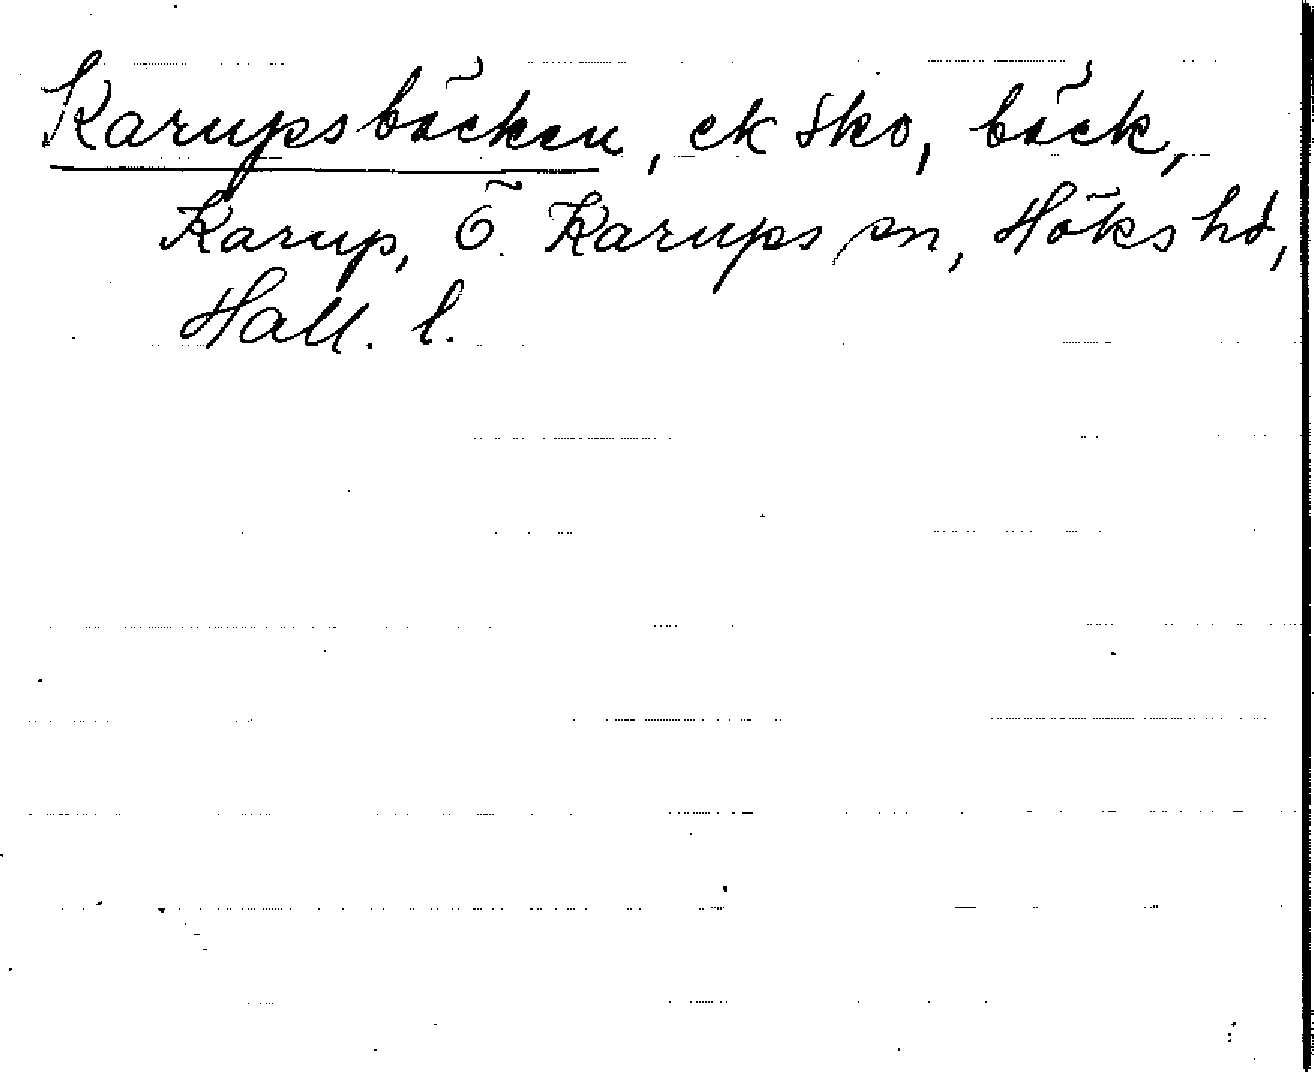 Karupsbäcken, ek sko, bäck,
Karup, Ö. Karups sn, Höks hd,
Hall. l.